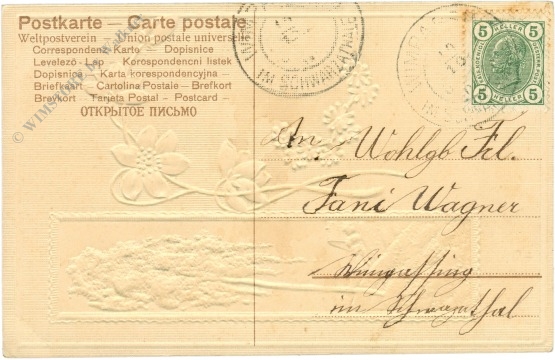 Postkarte – Carte postale
Weltpostverein – Union postale universelle
Correspondenz Karto – Dopisnice
Levelezö-Lap – Korospondencni listek
Dopisnica – Karta korespondencyjna
Briefkort – Cartolina Postale – Brefkort
Brevkort – Tarjeta Postal – Postcard –
ОТКРЫТОЕ ПИСЬМО
IM SCHWARZATHALE
5 5
HELLER
5 HELLER 5
An Wohlgb Frl.
Fani Wagner
im Schwarzathal